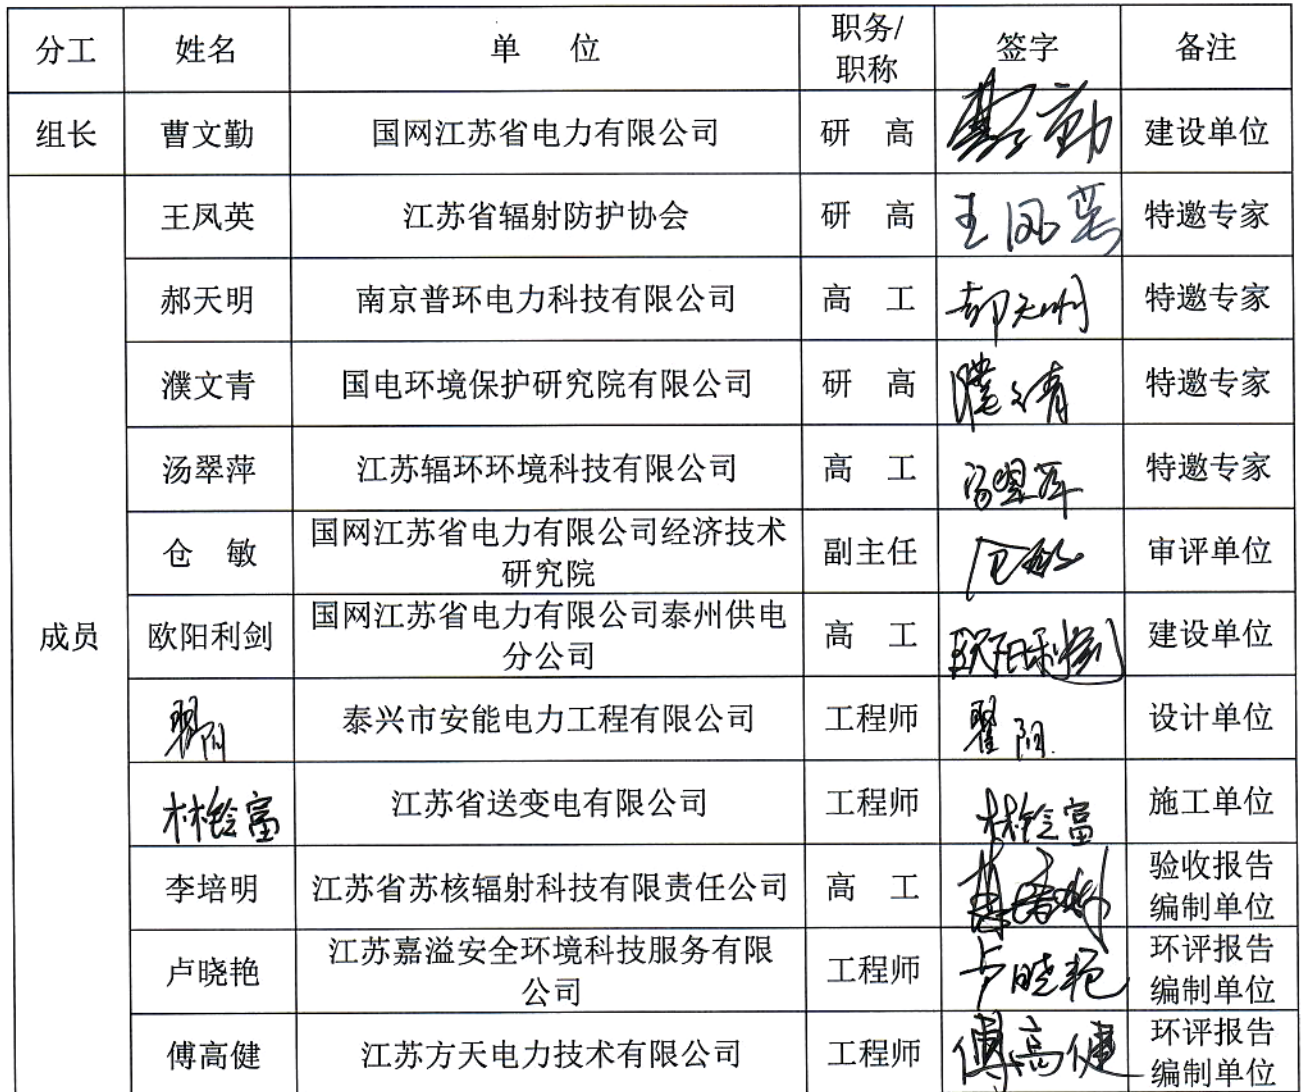 分工 姓名 单 位 职务/ 签字 备注
职称
组长 曹文勤 国网江苏省电力有限公司 研 高 曹文勤 建设单位
王凤英 江苏省辐射防护协会 研 高 王凤英 特邀专家
郝天明 南京普环电力科技有限公司 高 工 郝天明 特邀专家
濮文青 国电环境保护研究院有限公司 研 高 濮文青 特邀专家
汤翠萍 江苏辐环环境科技有限公司 高 工 汤翠萍 特邀专家
仓 敏 国网江苏省电力有限公司经济技术 副主任 仓敏 审评单位
研究院
成员 欧阳利剑 国网江苏省电力有限公司泰州供电 高 工 欧阳利剑 建设单位
分公司
翟阳 泰兴市安能电力工程有限公司 工程师 翟阳 设计单位
林铨富 江苏省送变电有限公司 工程师 林铨富 施工单位
李培明 江苏省苏核辐射科技有限责任公司 高 工 验收报告
编制单位
卢晓艳 江苏嘉溢安全环境科技服务有限 工程师 卢晓艳 环评报告
公司 编制单位
傅高健 江苏方天电力技术有限公司 工程师 傅高健 环评报告
编制单位